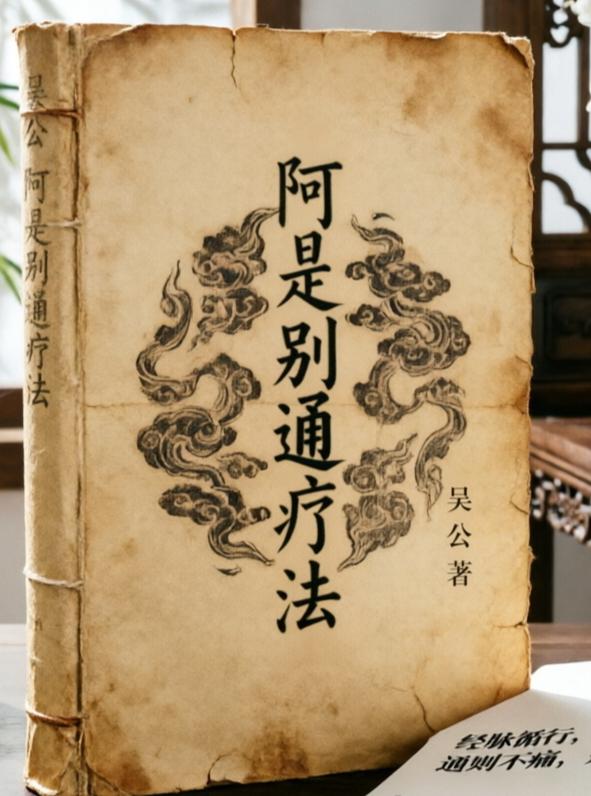 吴公 阿是别通疗法
阿是别通疗法
吴公著
经脉循行，
通则不痛，